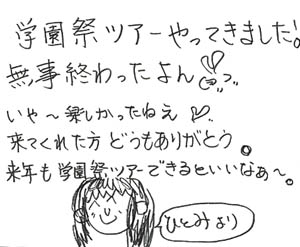 学園祭ツアーやってきました!
無事終わったよん
いや〜楽しかったねえ
来てくれた方どうもありがとう。
来年も学園祭ツアーできるといいなぁ〜。
ひとみより